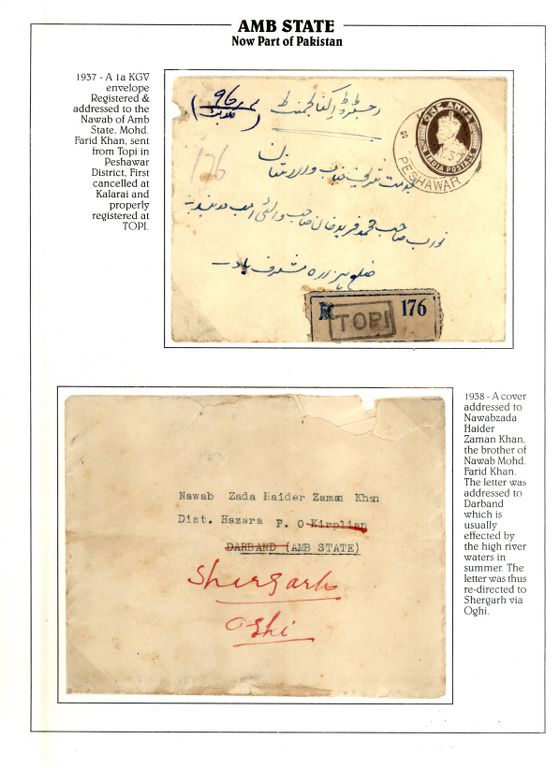 AMB STATE
Now Part of Pakistan
1937 - A 1a KGV
envelope
Registered &
addressed to the
Nawab of Amb
State, Mohd.
Farid Khan, sent
from Topi in
Peshawar
District, First
cancelled at
Kalarai and
properly
registered at
TOPI.
رجسٹرڈ
176
ONE ANNA
INDIA POSTAGE
PESHAWAR
نواب صاحب محمد فرید خان صاحب والئی امب
ضلع ہزارہ مشرف باد
R 176
TOPI
Nawab Zada Haider Zaman Khan
Dist. Hazara P. O Kirplian
DARBAND (AMB STATE)
Shergarh
Oghi
1938 - A cover
addressed to
Nawabzada
Haider
Zaman Khan,
the brother of
Nawab Mohd.
Farid Khan.
The letter was
addressed to
Darband
which is
usually
effected by
the high river
waters in
summer. The
letter was thus
re-directed to
Shergarh via
Oghi.